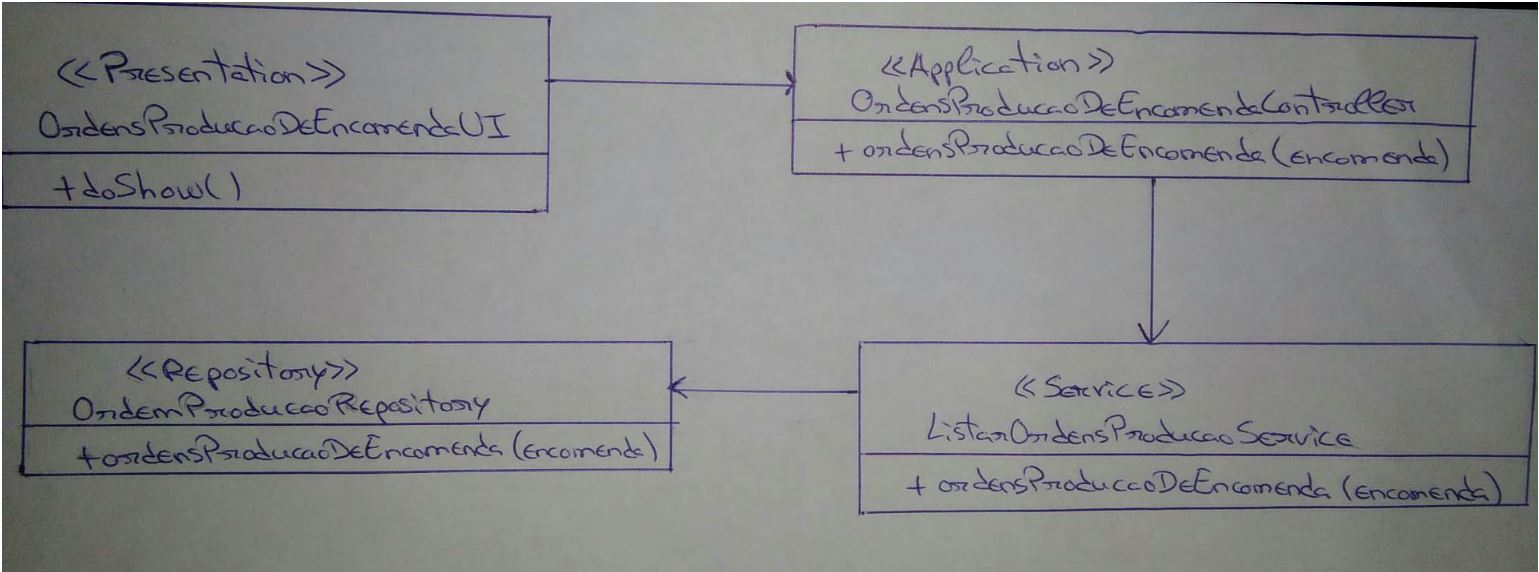 <<Presentation>>
OrdensProducaoDeEncomendaUI
+doShow()
<<Application>>
OrdensProducaoDeEncomendaController
+ ordensProducaoDeEncomenda(encomenda)
<<Repository>>
OrdemProducaoRepository
+ordensProducaoDeEncomenda(encomenda)
<<Service>>
ListarOrdensProducaoService
+ ordensProducaoDeEncomenda(encomenda)